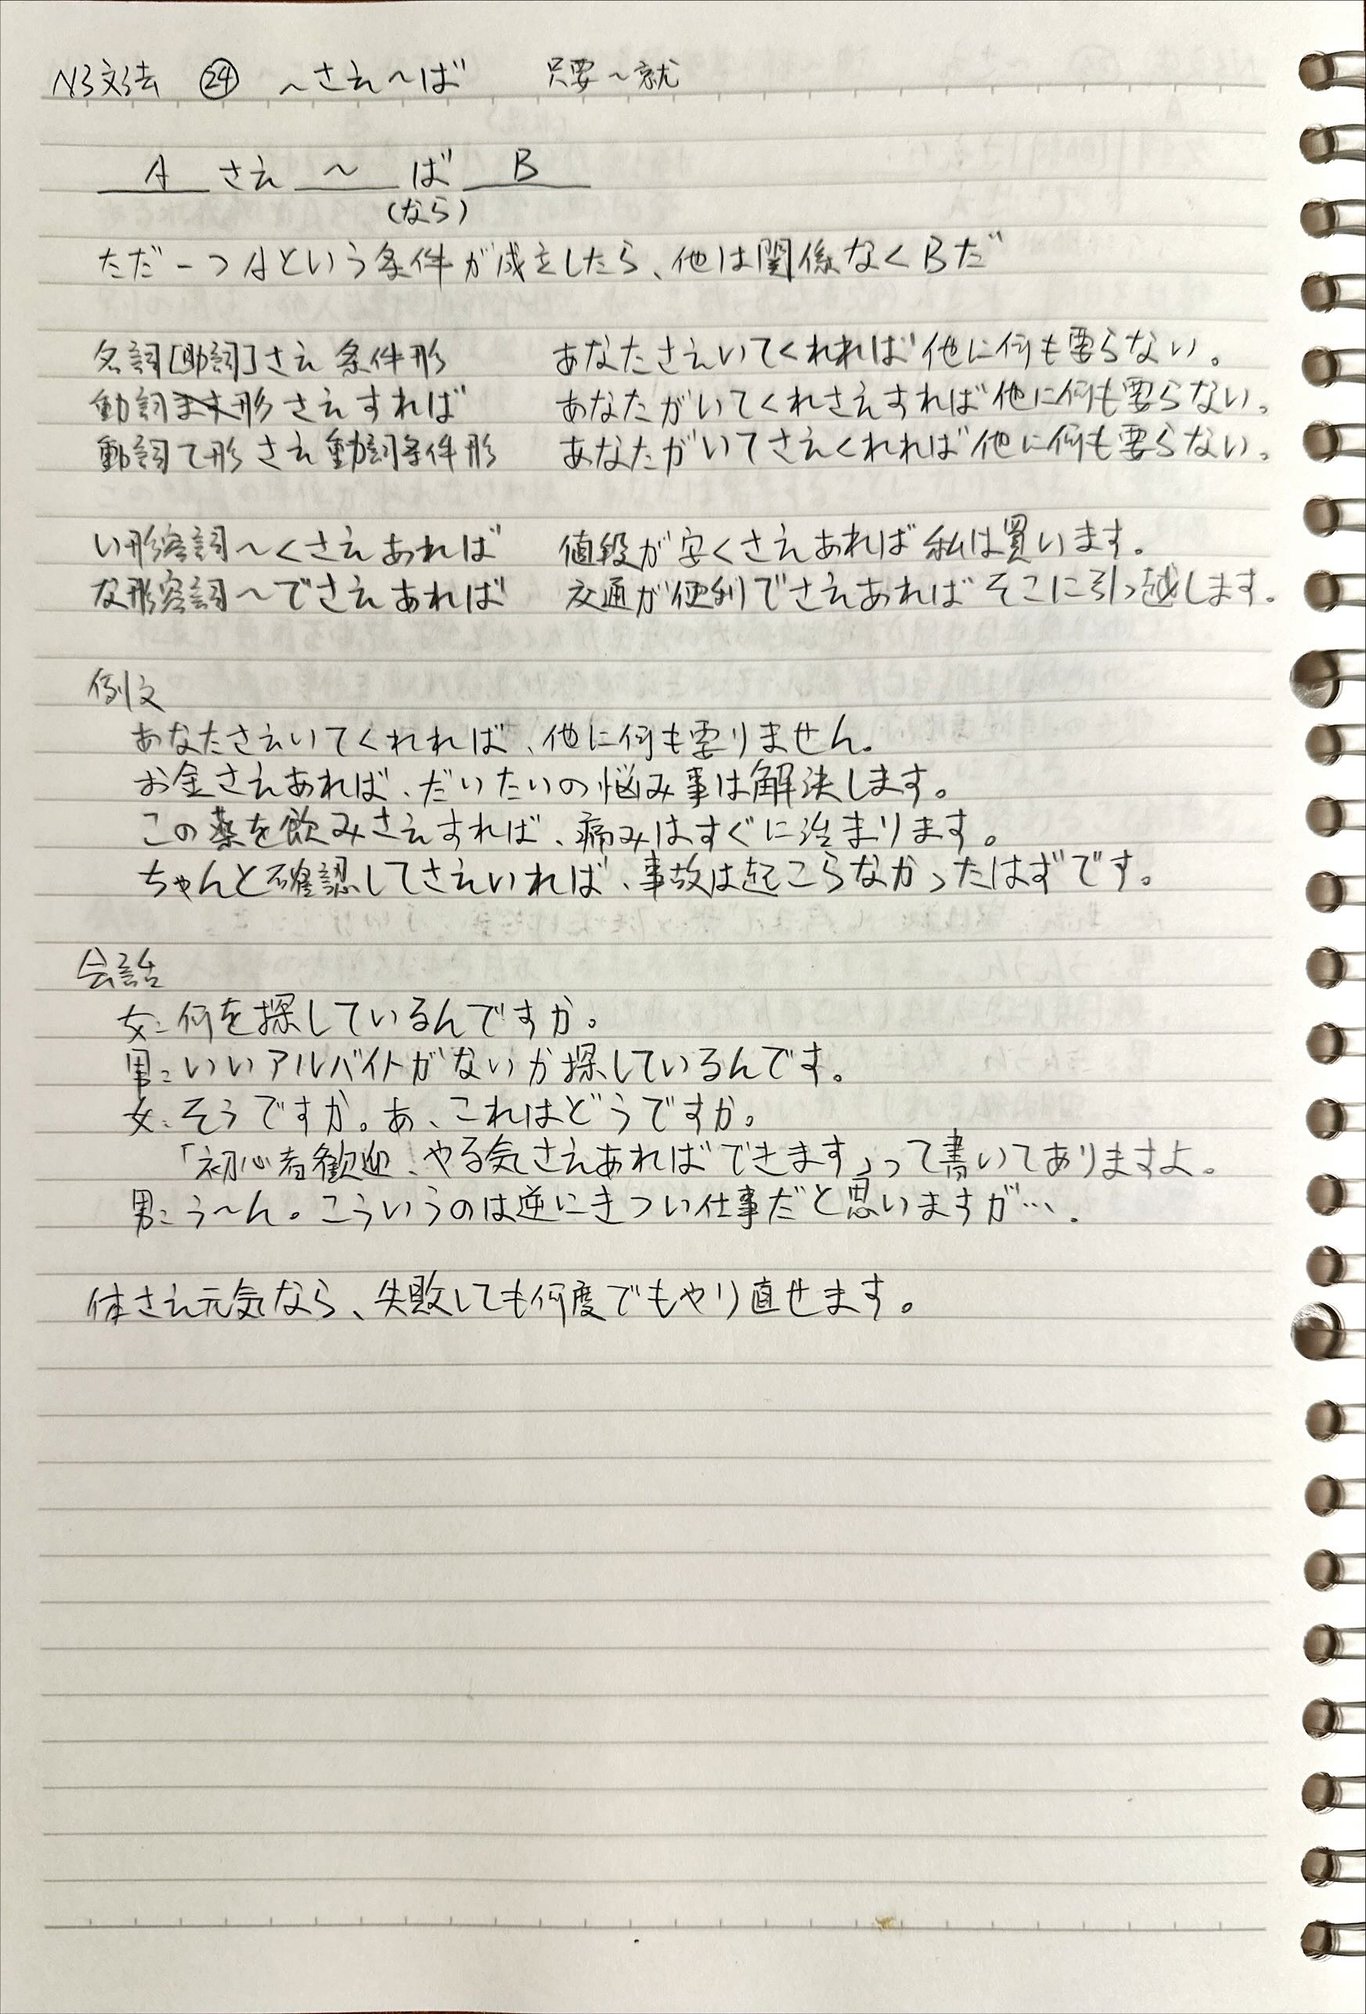 N3文法 ㉔ ～さえ～ば 只要～就
A さえ ～ ば B
(なら)
ただ一つAという条件が成立したら、他は関係なくBだ
名詞[助詞]さえ 条件形 あなたさえいてくれれば他に何も要らない。
動詞ます形さえすれば あなたがいてくれさえすれば他に何も要らない。
動詞て形さえ動詞条件形 あなたがいてさえくれれば他に何も要らない。
い形容詞～くさえあれば 値段が安くさえあれば私は買います。
な形容詞～でさえあれば 交通が便利でさえあればそこに引っ越します。
例文
あなたさえいてくれれば、他に何も要りません。
お金さえあれば、だいたいの悩み事は解決します。
この薬を飲みさえすれば、痛みはすぐに治まります。
ちゃんと確認してさえいれば、事故は起こらなかったはずです。
会話
女：何を探しているんですか。
男：いいアルバイトがないか探しているんです。
女：そうですか。あ、これはどうですか。
「初心者歓迎、やる気さえあればできます」って書いてありますよ。
男：う～ん。こういうのは逆にきつい仕事だと思いますが…．
体さえ元気なら、失敗しても何度でもやり直せます。